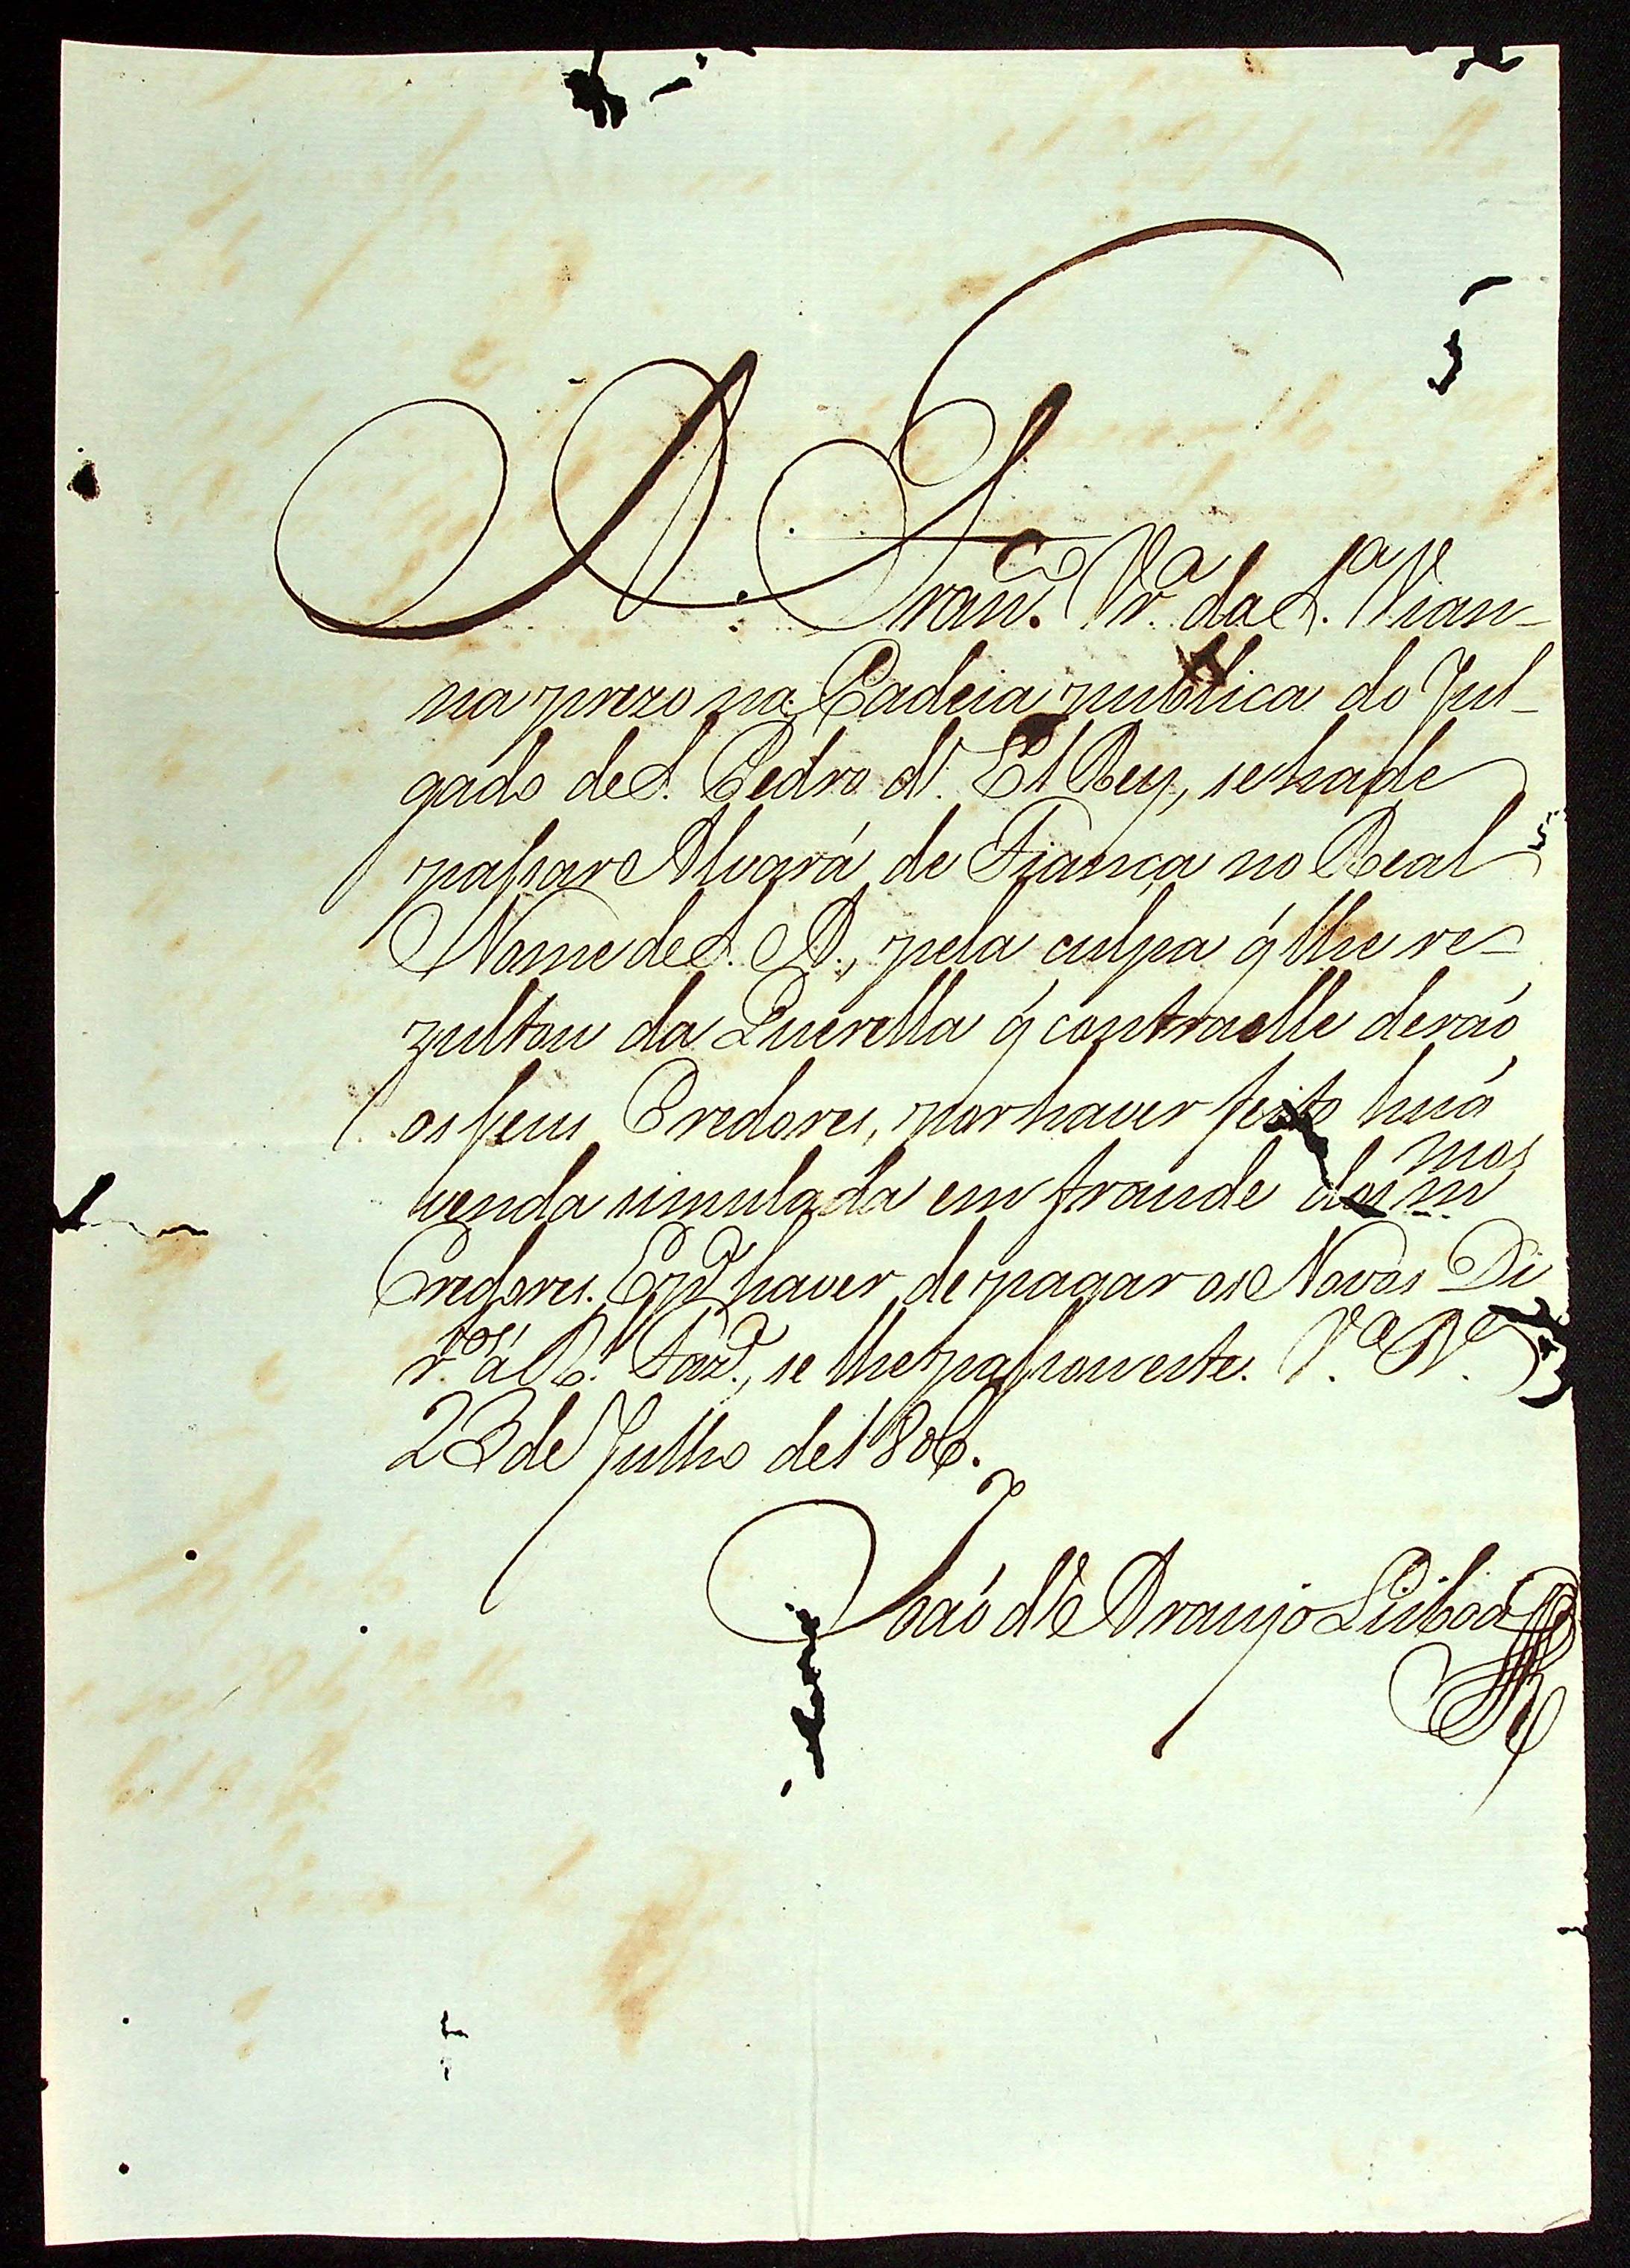 A Fran.co Vr.a da S.a Vian-
na prezo na Cadeia publica do Jul-
gado de S. Pedro d'El Rey, se ha de
passar Alvará de Fiança no Real
Nome de S. A., pela culpa q̃ lhe re-
zultou da Querella q̃ contra elle deraõ
os seus Credores, por haver feito huã
venda simulada em fraude dos m.mos
Credores. E p.a haver de pagar os Novos Di
r.tos á R.l Faz.da, se lhe passou este. V.a R.a
23 de Julho de 1806.
Joaõ de Araujo Lisboa